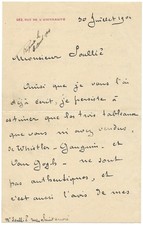 30 Juillet 190
Monsieur Soullié
Ainsi que je vous l'ai
déjà écrit, je persiste à
estimer que les trois tableaux
que vous m'avez vendus,
de Whistler - Gauguin, et
Van Gogh - ne sont
pas authentiques, et
c'est aussi l'avis de mes